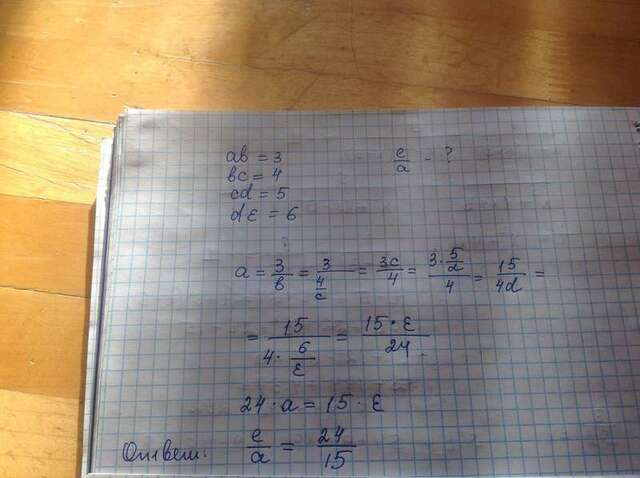 ab = 3
e/a - ?
bc = 4
cd = 5
dε = 6
a = 3/b = 3/(4/c) = 3c/4 = (3·5/d)/4 = 15/4d =
= 15/(4·6/ε) = 15·ε/24
24·a = 15·ε
Ответ: e/a = 24/15